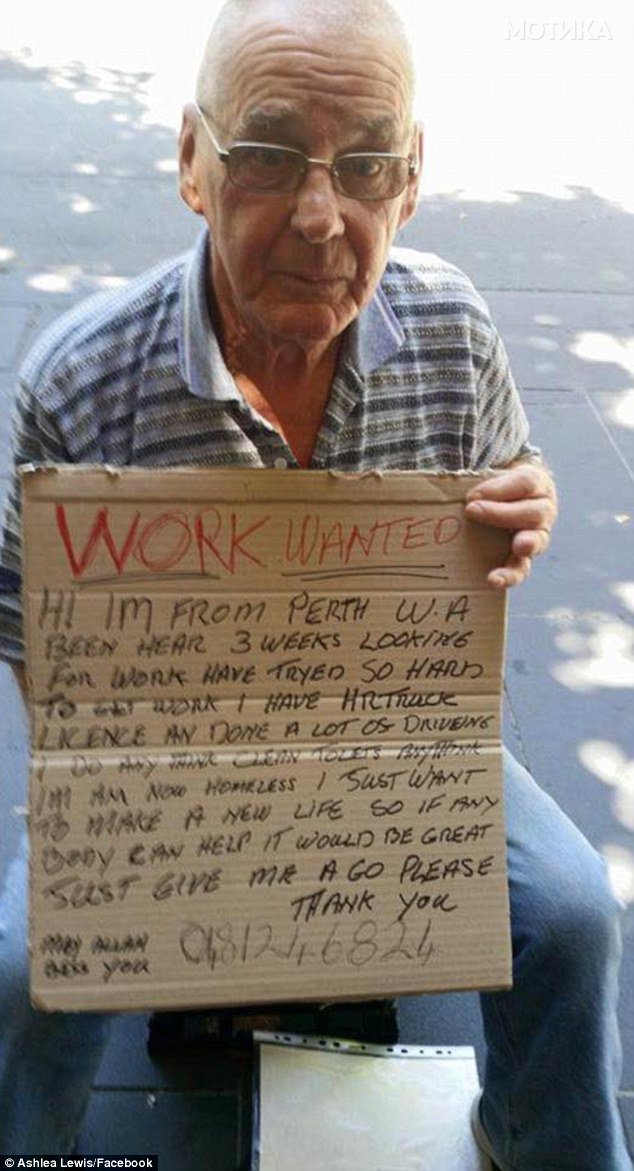 МОТИКА
WORK WANTED
HI IM FROM PERTH W.A
BEEN HEAR 3 WEEKS LOOKING
FOR WORK HAVE TRYED SO HARD
TO GET WORK I HAVE HRTRUCK
LICENCE AN DONE A LOT OF DRIVEING
I DO ANY THINK CLEAN TOLETS ANYTHINK
IM AM NOW HOMELESS I JUST WANT
TO MAKE A NEW LIFE SO IF ANY
BODY CAN HELP IT WOULD BE GREAT
JUST GIVE ME A GO PLEASE
THANK YOU
MAY ALLAH
BESS YOU
0481246824
© Ashlea Lewis/Facebook